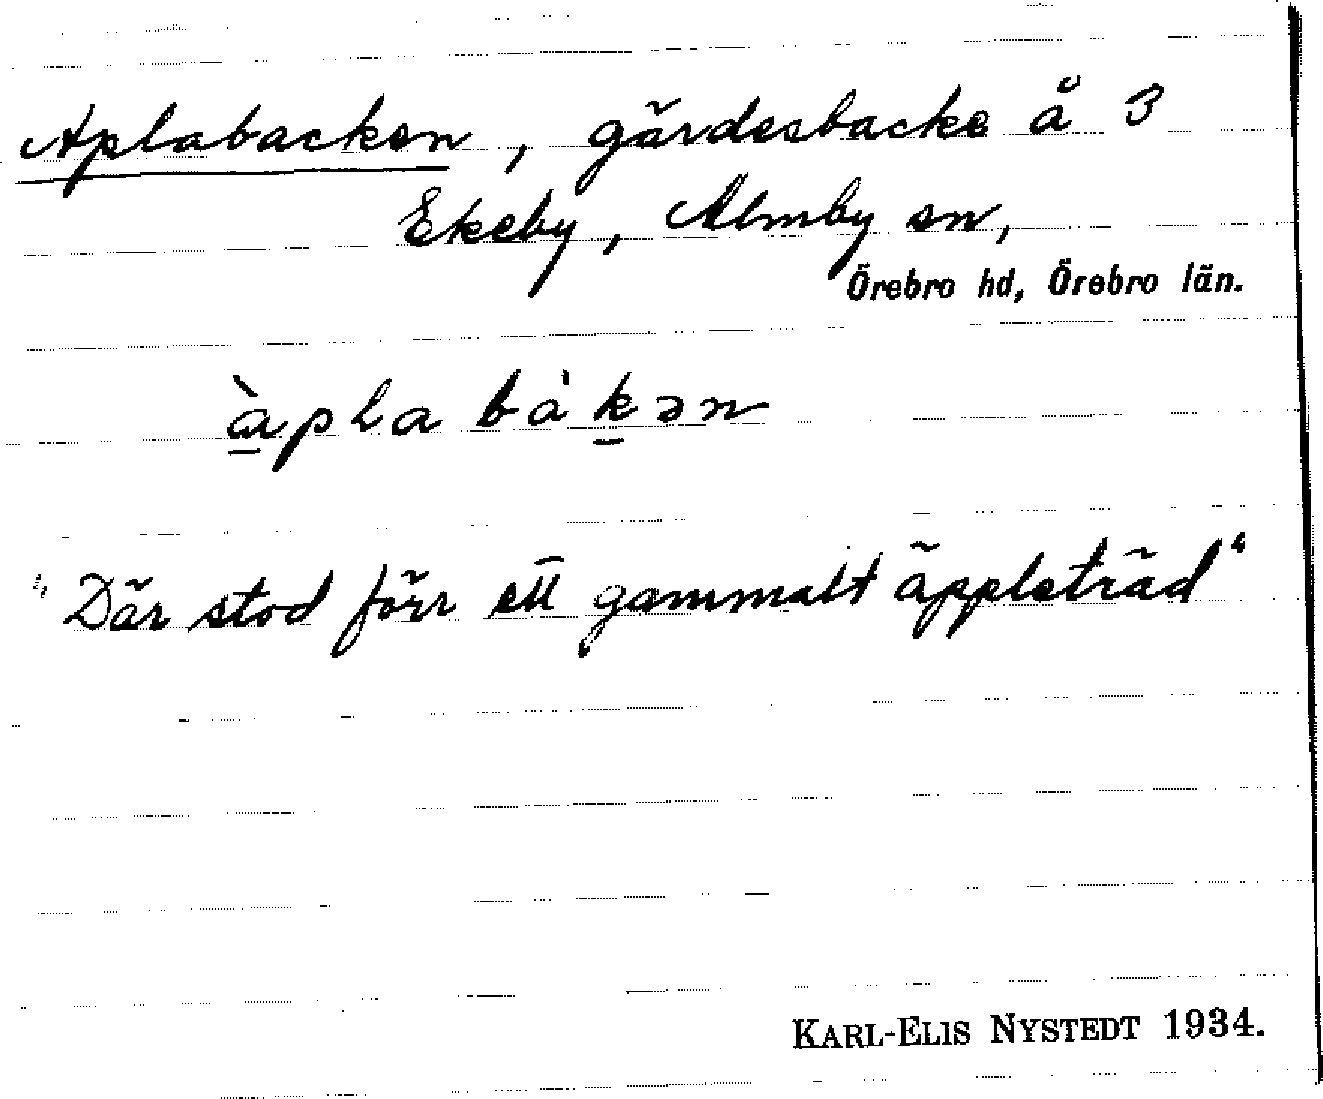 Aplabacken, gärdesbacke å 3
Ekeby, Almby sn,
Örebro hd, Örebro län.
à̱plabàḵən
"Där stod förr ett gammalt äppleträd"
KARL-ELIS NYSTEDT 1934.